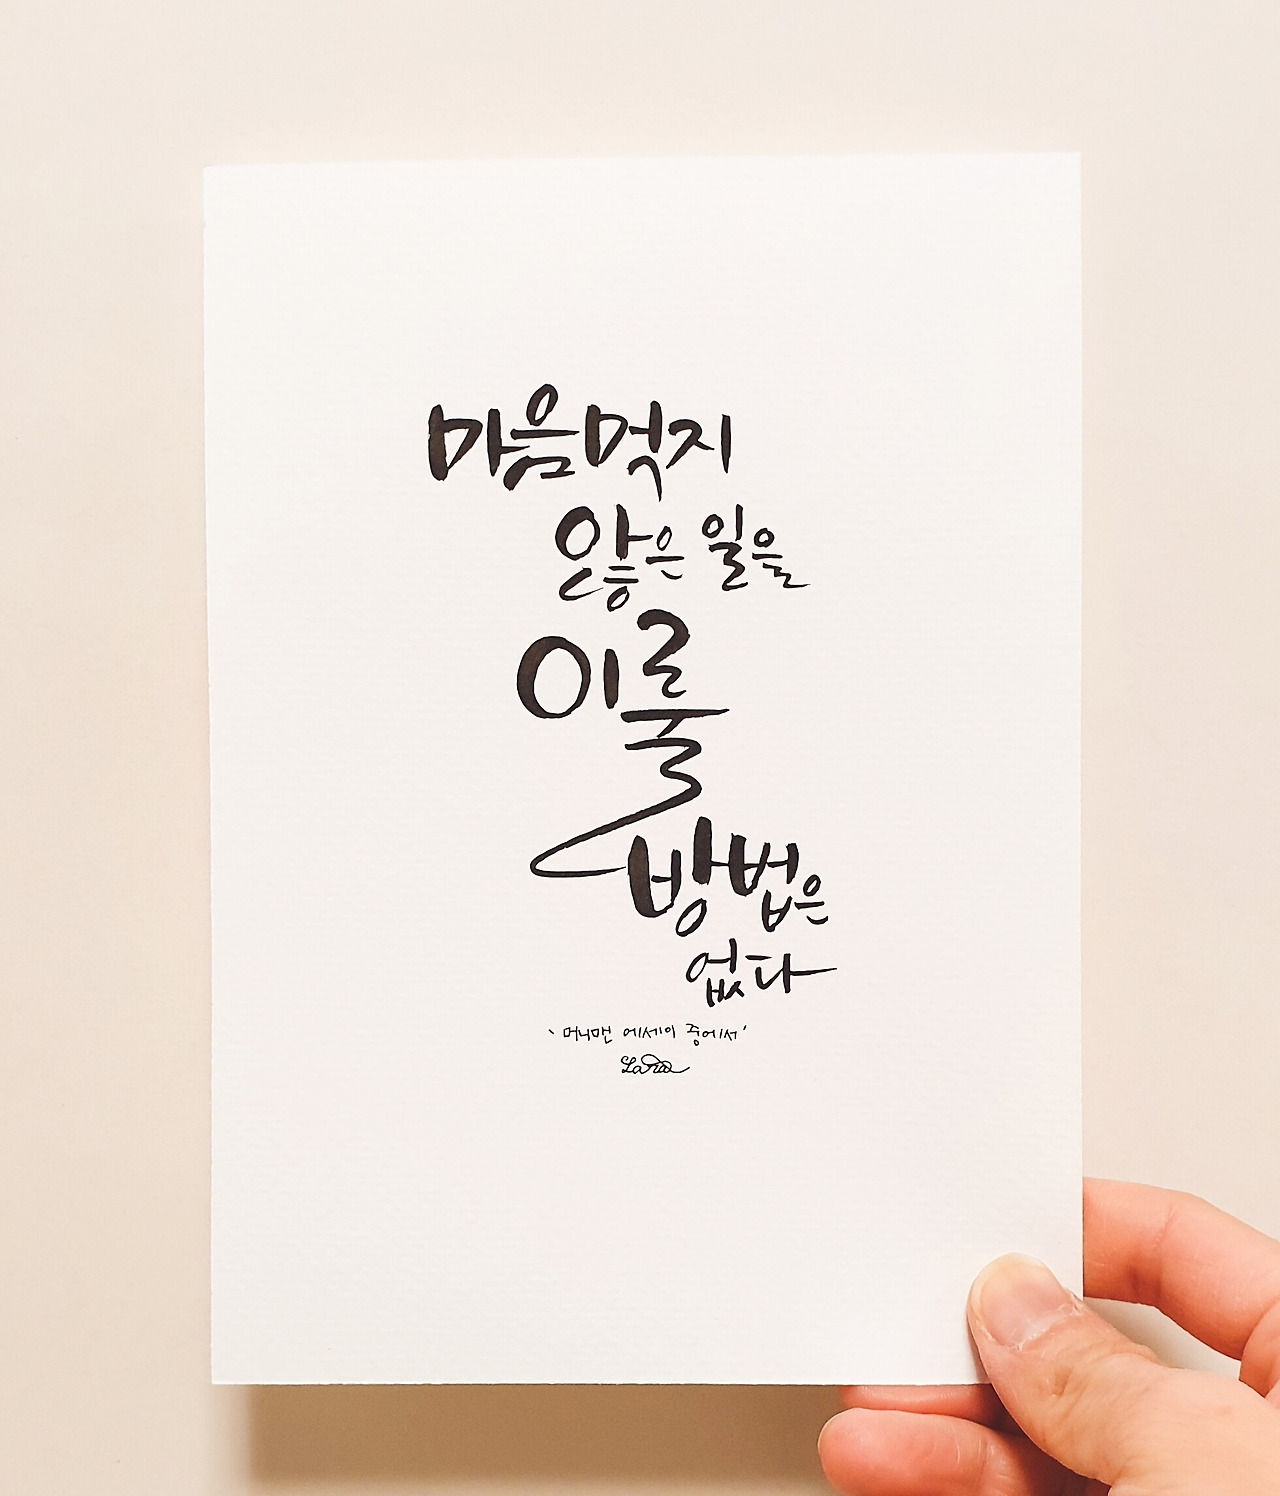 마음먹지
않은 일을
이룰
방법은
없다
‵머니맨 에세이 중에서′